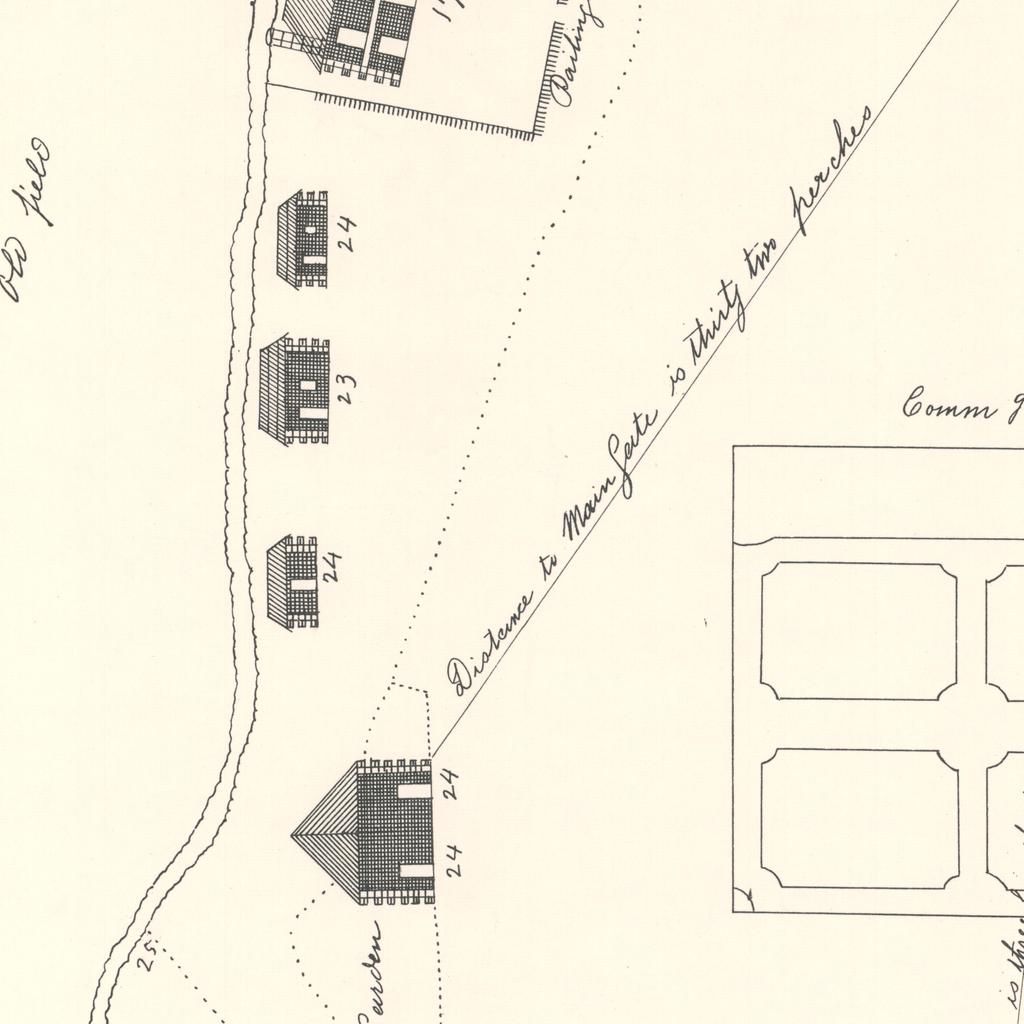 Old field
Pailing
24
23
24
Distance to Main Gate is thirty two perches
Comm
24
24
25.
Garden
is three